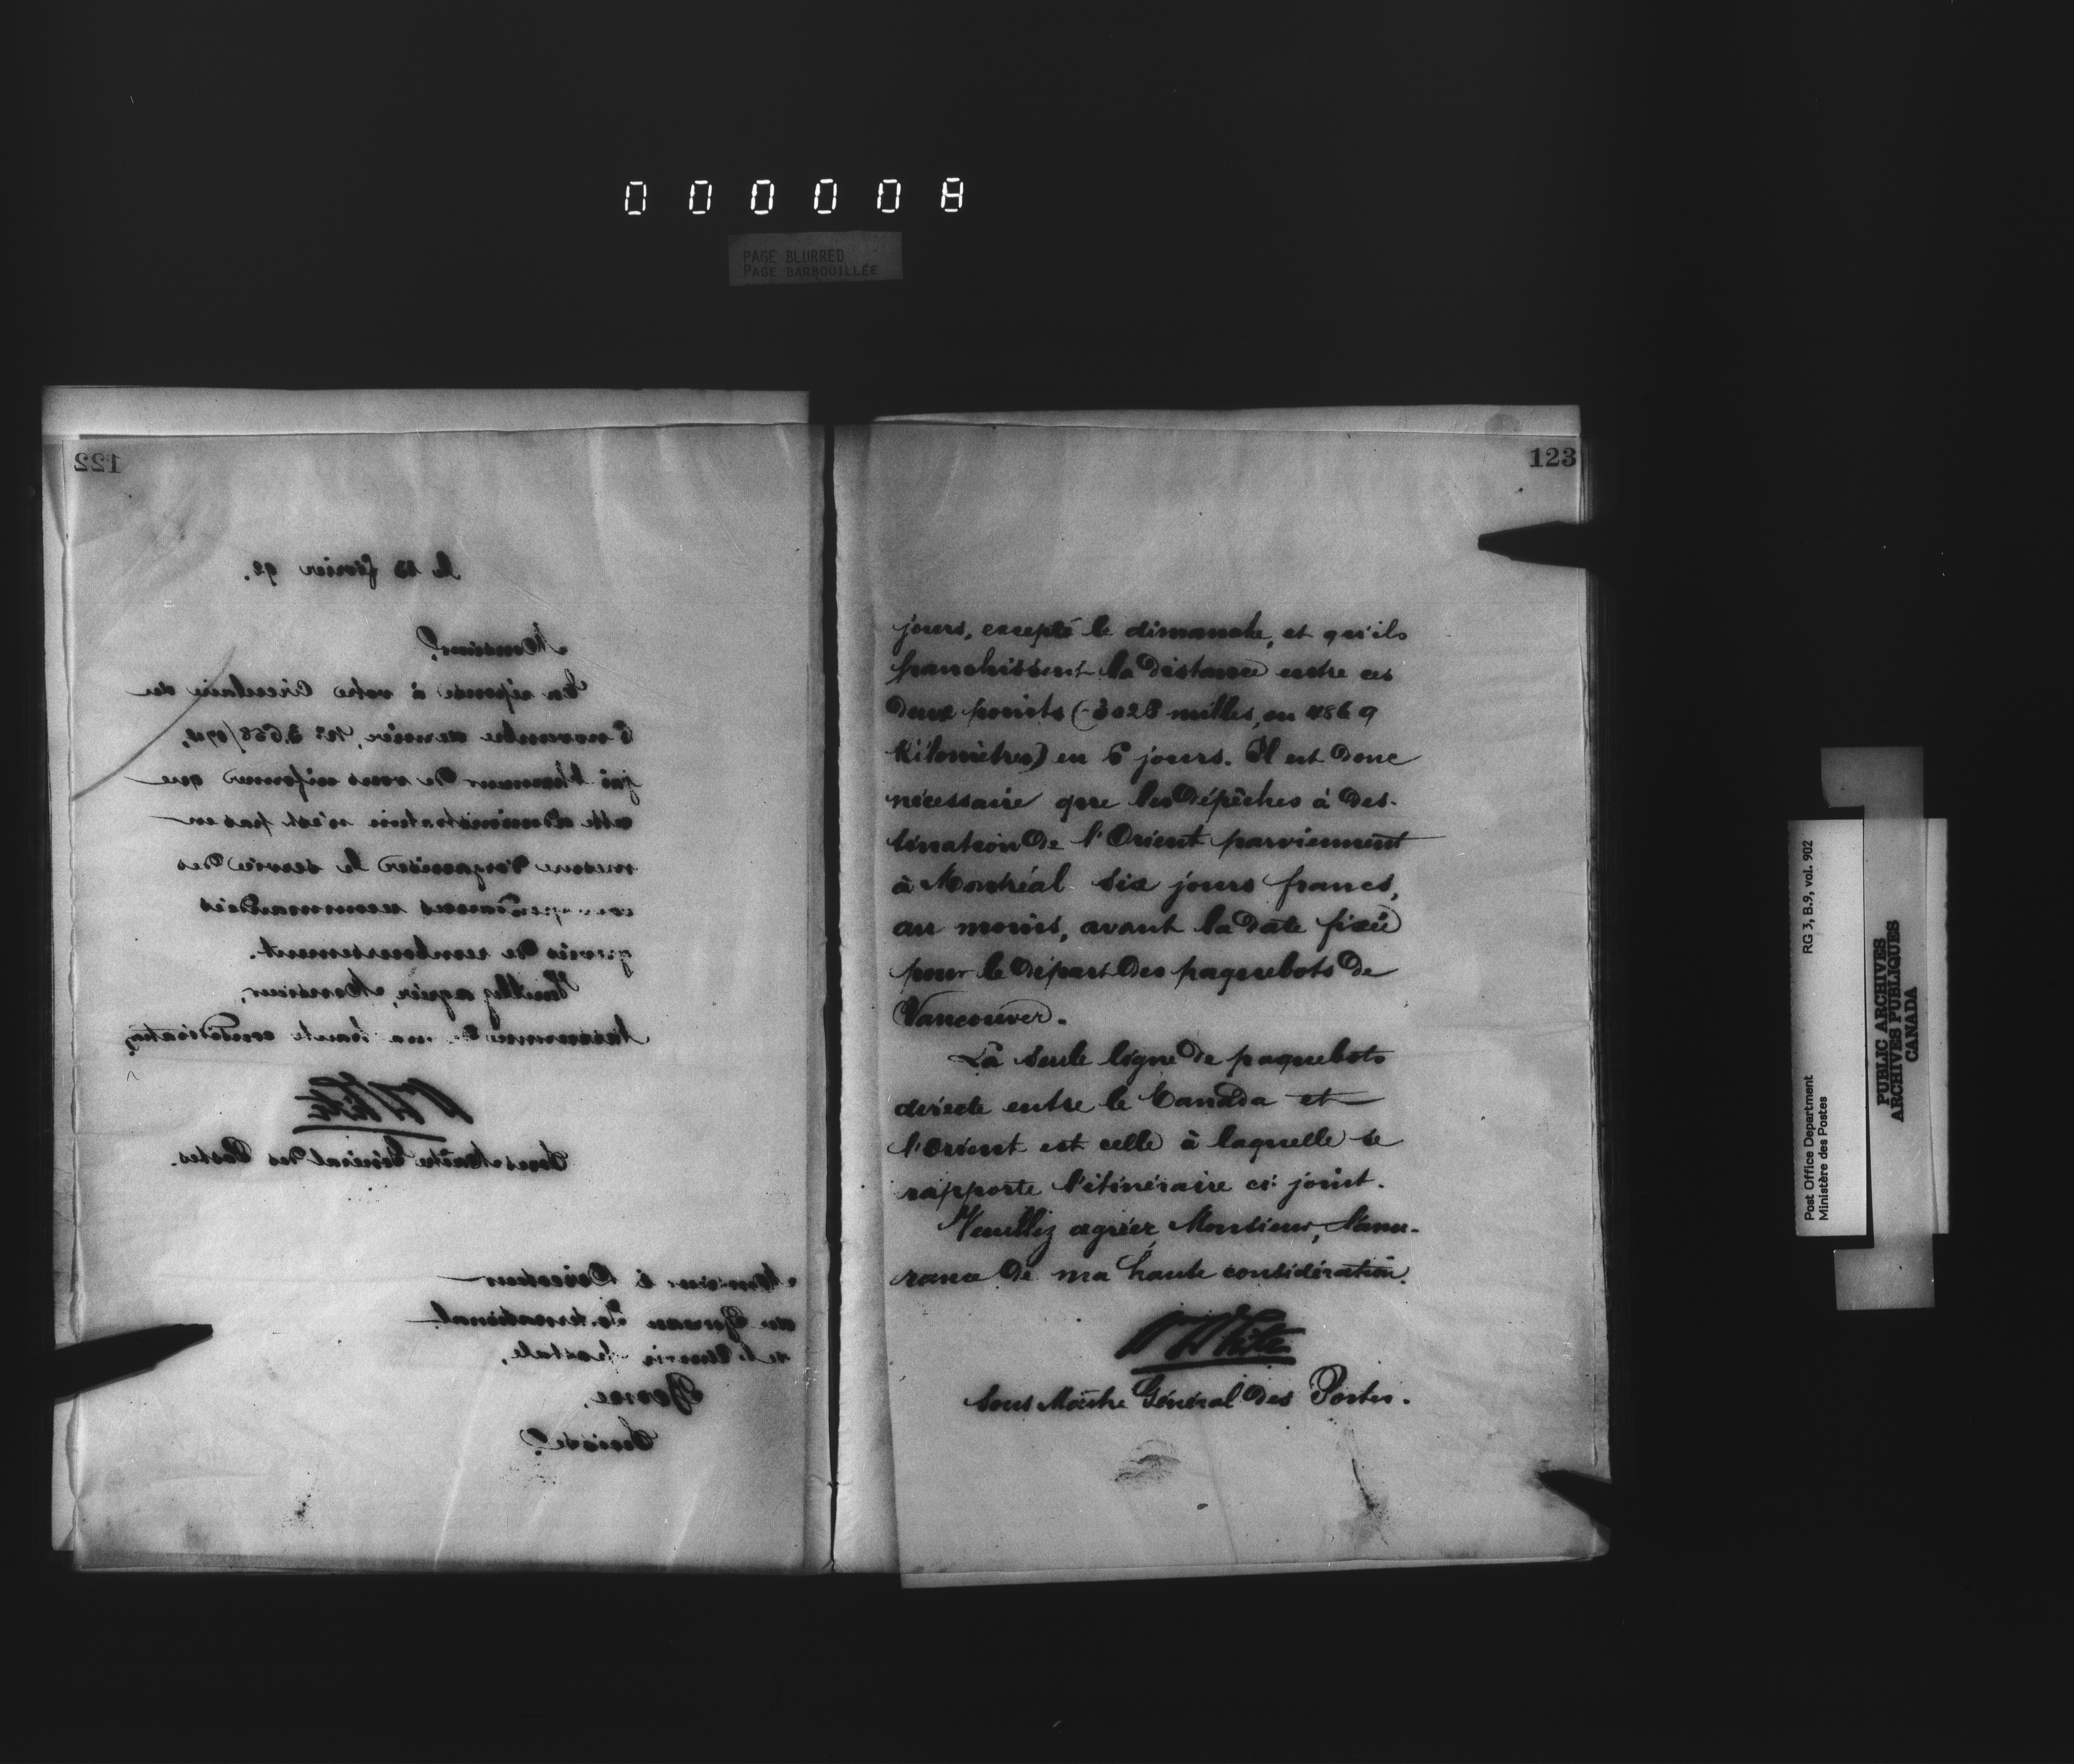 000008
PAGE BLURRED
PAGE BARBOUILLÉE
122
le 23 février 92.
Monsieur,
En réponse à votre Circulaire du
6 novembre dernier, No
j'ai l'honneur de vous informer que
cette administration n'est pas en
mesure d'organiser le service des
correspondances recommandées
grevées de remboursement.
Veuillez agréer, Monsieur,
l'assurance de ma haute considération,
W White
Sous Maître Général des Postes.
Monsieur le Directeur
du Bureau International
de l'Union Postale,
Berne,
Suisse.
123
jours, excepté le dimanche, et qu'ils
franchissent la distance entre ces
deux points (3028 milles, ou 4869
Kilomètres) en 6 jours. Il est donc
nécessaire que les dépêches à des-
tination de l'Orient parviennent
à Montréal six jours francs,
au moins, avant la date fixée
pour le départ des paquebots de
Vancouver.
La seule ligne de paquebots
directe entre le Canada et
l'Orient est celle à laquelle se
rapporte l'itinéraire ci-joint.
Veuillez agréer Monsieur, l'assu-
rance de ma haute considération.
W White
Sous Maître Général des Postes.
Post Office Department RG 3, B.9, vol. 902
Ministère des Postes
PUBLIC ARCHIVES
ARCHIVES PUBLIQUES
CANADA